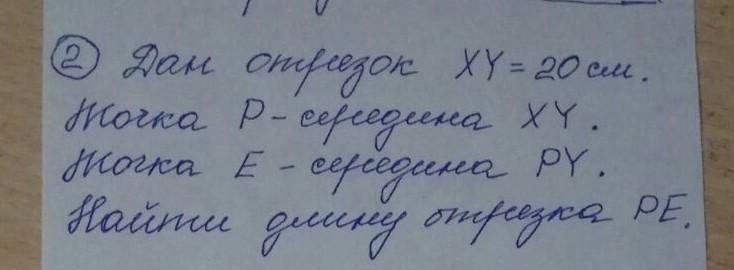 ② Дан отрезок XY = 20 см.
Точка P - середина XY.
Точка E - середина PY.
Найти длину отрезка PE.